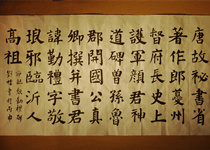 唐故秘書省
著作郎夔州
都督府長史上
護軍顏君神
道碑曾孫魯
郡開國公真
卿撰并書君
諱勤禮字敬
琅邪臨沂人
高祖